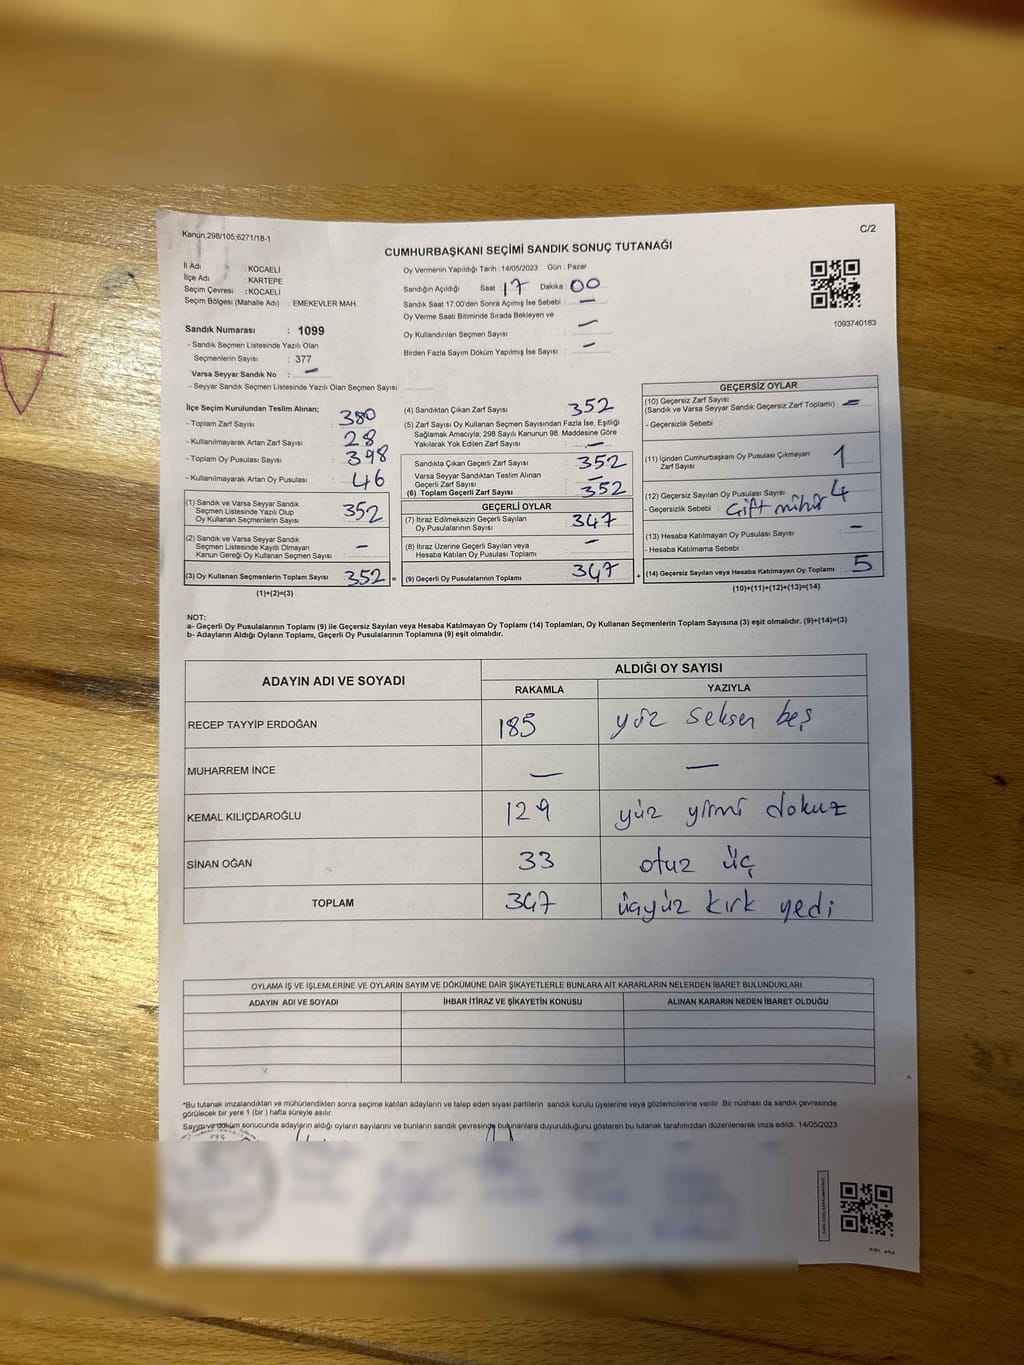 Kanun;298/105;6271/18-1
C/2
CUMHURBAŞKANI SEÇİMİ SANDIK SONUÇ TUTANAĞI
İl Adı : KOCAELİ
İlçe Adı : KARTEPE
Seçim Çevresi : KOCAELİ
Seçim Bölgesi (Mahalle Adı) : EMEKEVLER MAH.
Sandık Numarası : 1099
- Sandık Seçmen Listesinde Yazılı Olan
Seçmenlerin Sayısı : 377
Varsa Seyyar Sandık No : —
- Seyyar Sandık Seçmen Listesinde Yazılı Olan Seçmen Sayısı:
Oy Vermenin Yapıldığı Tarih :14/05/2023 Gün : Pazar
Sandığın Açıldığı Saat : 17 Dakika : 00
Sandık Saat 17:00'den Sonra Açımış İse Sebebi : —
Oy Verme Saati Bitiminde Sırada Bekleyen ve
Oy Kullandırılan Seçmen Sayısı : —
Birden Fazla Sayım Döküm Yapılmış İse Sayısı : —
1093740183
İlçe Seçim Kurulundan Teslim Alınan;
- Toplam Zarf Sayısı : 380
- Kullanılmayarak Artan Zarf Sayısı : 28
- Toplam Oy Pusulası Sayısı : 398
- Kullanılmayarak Artan Oy Pusulası : 46
(1) Sandık ve Varsa Seyyar Sandık
Seçmen Listesinde Yazılı Olup
Oy Kullanan Seçmenlerin Sayısı : 352
(2) Sandık ve Varsa Seyyar Sandık
Seçmen Listesinde Kayıtlı Olmayan
Kanun Gereği Oy Kullanan Seçmen Sayısı : —
(3) Oy Kullanan Seçmenlerin Toplam Sayısı : 352 =
(1)+(2)=(3)
(4) Sandıktan Çıkan Zarf Sayısı : 352
(5) Zarf Sayısı Oy Kullanan Seçmen Sayısından Fazla İse, Eşitliği
Sağlamak Amacıyla; 298 Sayılı Kanunun 98. Maddesine Göre
Yakılarak Yok Edilen Zarf Sayısı : —
Sandıkta Çıkan Geçerli Zarf Sayısı : 352
Varsa Seyyar Sandıktan Teslim Alınan
Geçerli Zarf Sayısı : —
(6) Toplam Geçerli Zarf Sayısı : 352
GEÇERLİ OYLAR
(7) İtiraz Edilmeksizin Geçerli Sayılan
Oy Pusulalarının Sayısı : 347
(8) İtiraz Üzerine Geçerli Sayılan veya
Hesaba Katılan Oy Pusulası Toplamı : —
(9) Geçerli Oy Pusulalarının Toplamı : 347 +
GEÇERSİZ OYLAR
(10) Geçersiz Zarf Sayısı
(Sandık ve Varsa Seyyar Sandık Geçersiz Zarf Toplamı) : —
- Geçersizlik Sebebi :
(11) İçinden Cumhurbaşkanı Oy Pusulası Çıkmayan
Zarf Sayısı : 1
(12) Geçersiz Sayılan Oy Pusulası Sayısı : 4
- Geçersizlik Sebebi : Çift mühür
(13) Hesaba Katılmayan Oy Pusulası Sayısı : —
- Hesaba Katılmama Sebebi :
(14) Geçersiz Sayılan veya Hesaba Katılmayan Oy Toplamı : 5
(10)+(11)+(12)+(13)=(14)
NOT:
a- Geçerli Oy Pusulalarının Toplamı (9) ile Geçersiz Sayılan veya Hesaba Katılmayan Oy Toplamı (14) Toplamları, Oy Kullanan Seçmenlerin Toplam Sayısına (3) eşit olmalıdır. (9)+(14)=(3)
b- Adayların Aldığı Oyların Toplamı, Geçerli Oy Pusulalarının Toplamına (9) eşit olmalıdır.
ADAYIN ADI VE SOYADI
ALDIĞI OY SAYISI
RAKAMLA YAZIYLA
RECEP TAYYİP ERDOĞAN 185 yüz seksen beş
MUHARREM İNCE — —
KEMAL KILIÇDAROĞLU 129 yüz yirmi dokuz
SİNAN OĞAN 33 otuz üç
TOPLAM 347 üçyüz kırk yedi
OYLAMA İŞ VE İŞLEMLERİNE VE OYLARIN SAYIM VE DÖKÜMÜNE DAİR ŞİKAYETLERLE BUNLARA AİT KARARLARIN NELERDEN İBARET BULUNDUKLARI
ADAYIN ADI VE SOYADI İHBAR İTİRAZ VE ŞİKAYETİN KONUSU ALINAN KARARIN NEDEN İBARET OLDUĞU
*Bu tutanak imzalandıktan ve mühürlendikten sonra seçime katılan adayların ve talep eden siyasi partilerin sandık kurulu üyelerine veya gözlemcilerine verilir. Bir nüshası da sandık çevresinde
görülecek bir yere 1 (bir ) hafta süreyle asılır.
Sayım ve döküm sonucunda adayların aldığı oyların sayılarını ve bunların sandık çevresinde bulunanlara duyurulduğunu gösteren bu tutanak tarafımızdan düzenlenerek imza edildi. 14/05/2023